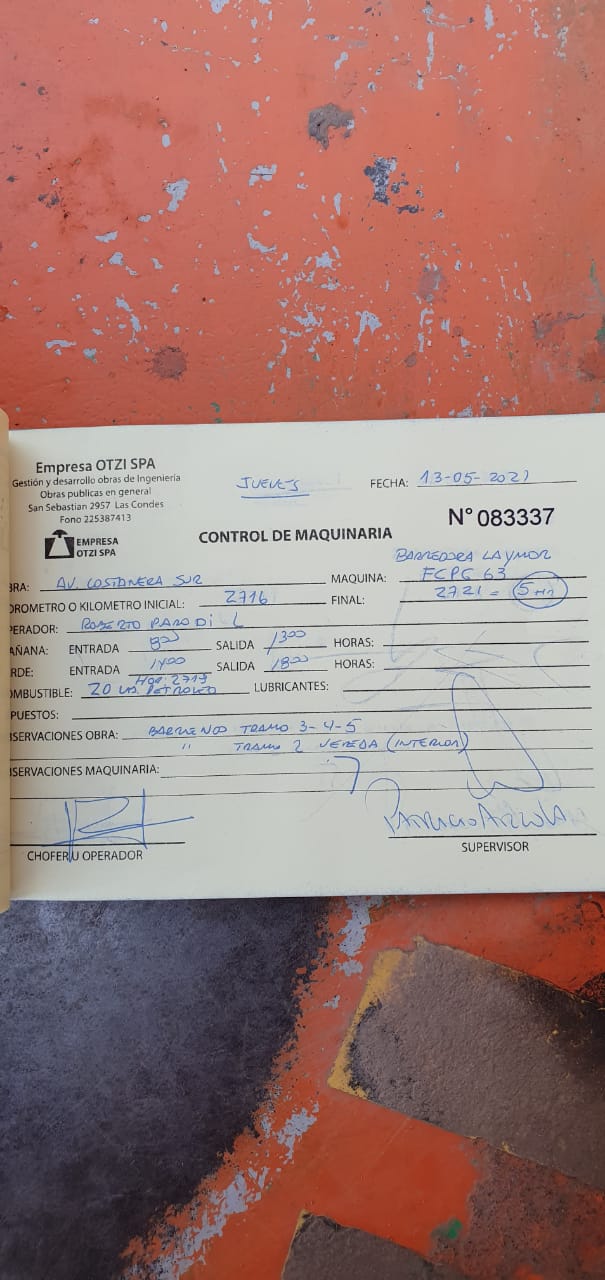 Empresa OTZI SPA
Gestión y desarrollo obras de Ingeniería
Obras publicas en general
San Sebastian 2957 Las Condes
Fono 225387413
EMPRESA
OTZI SPA
JUEVES
FECHA: 13-05-2021
N° 083337
CONTROL DE MAQUINARIA
BARREDORA LAYMOR
BRA: AV. COSTANERA SUR MAQUINA: FCPG 63
OROMETRO O KILOMETRO INICIAL: 2716 FINAL: 2721 = 5 Hrs
PERADOR: ROBERTO PARODI L
AÑANA: ENTRADA 800 SALIDA 1300 HORAS:
RDE: ENTRADA 1400 SALIDA 1800 HORAS:
Hor: 2719
OMBUSTIBLE: 20 Lts. PETROLEO LUBRICANTES:
PUESTOS:
SERVACIONES OBRA: BARRIENDO TRAMO 3-4-5
" TRAMO 2 VEREDA (INTERIOR)
SERVACIONES MAQUINARIA:
CHOFER U OPERADOR
PATRICIO
SUPERVISOR